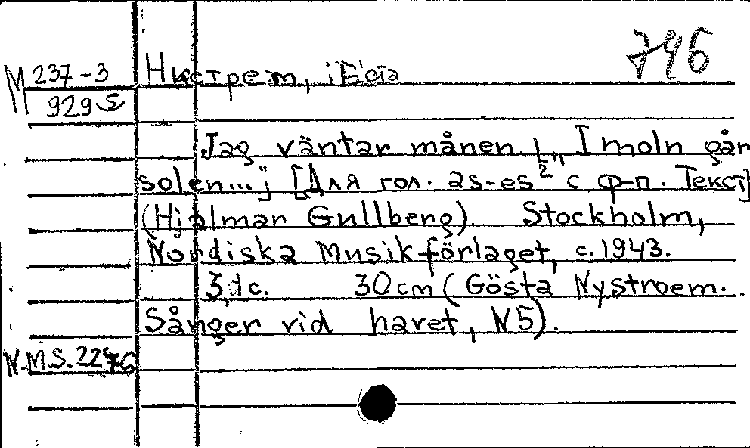 746
М 237-3
929 5
Нистрем, Гёста
Jag väntar månen. [„I moln går
solen..." [Для гол. as-es² с ф-п. Текст]
(Hjalmar Gullberg). Stockholm,
Nordiska Musikförlaget, c. 1943.
3, 1 с. 30 cm (Gösta Nystroem.
Sånger vid havet, N5).
N.M.S. 2276